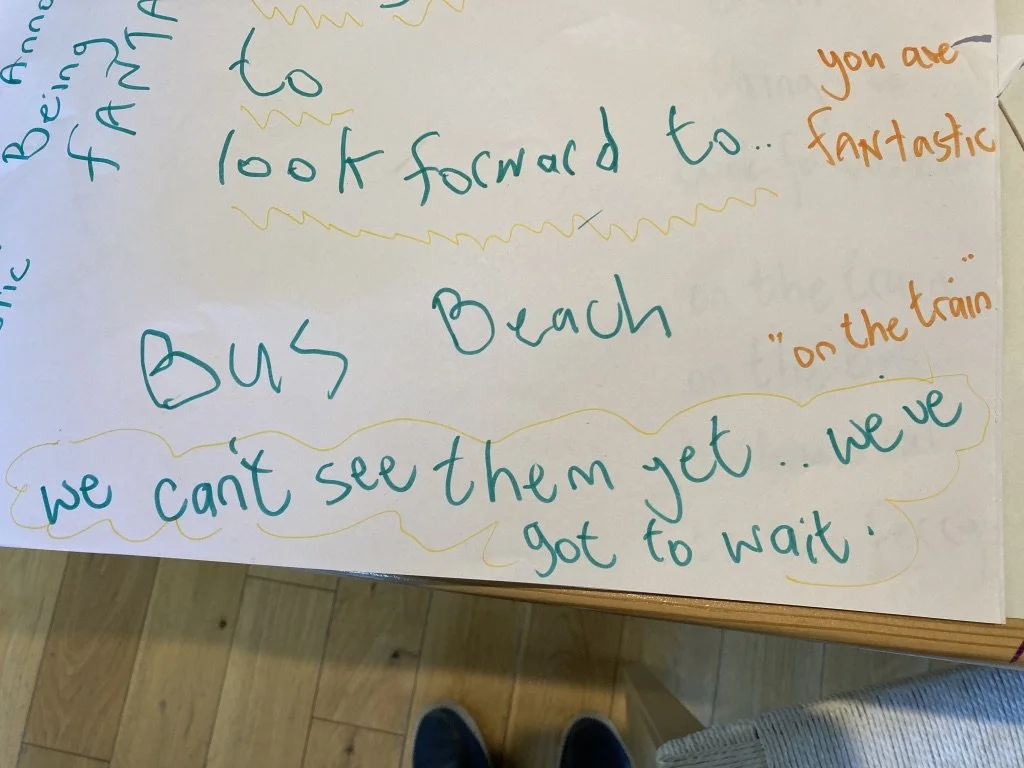 Being
FANTA
to
look forward to..
you are
fantastic
Bus Beach
"on the train"
we can't see them yet.. we've
got to wait.